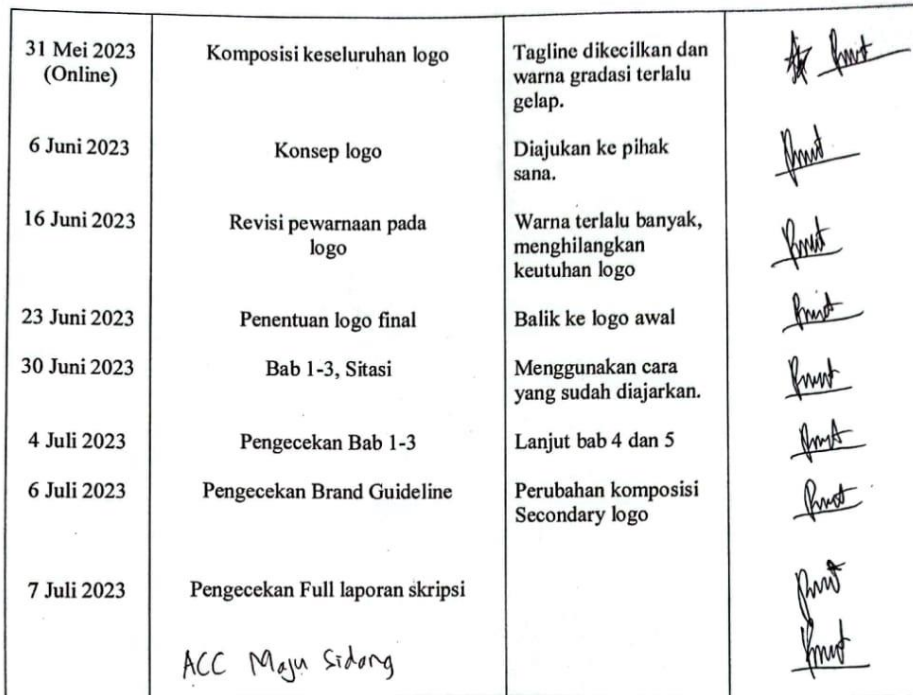 31 Mei 2023
(Online)
Komposisi keseluruhan logo
Tagline dikecilkan dan
warna gradasi terlalu
gelap.
6 Juni 2023
Konsep logo
Diajukan ke pihak
sana.
16 Juni 2023
Revisi pewarnaan pada
logo
Warna terlalu banyak,
menghilangkan
keutuhan logo
23 Juni 2023
Penentuan logo final
Balik ke logo awal
30 Juni 2023
Bab 1-3, Sitasi
Menggunakan cara
yang sudah diajarkan.
4 Juli 2023
Pengecekan Bab 1-3
Lanjut bab 4 dan 5
6 Juli 2023
Pengecekan Brand Guideline
Perubahan komposisi
Secondary logo
7 Juli 2023
Pengecekan Full laporan skripsi
ACC Maju Sidang